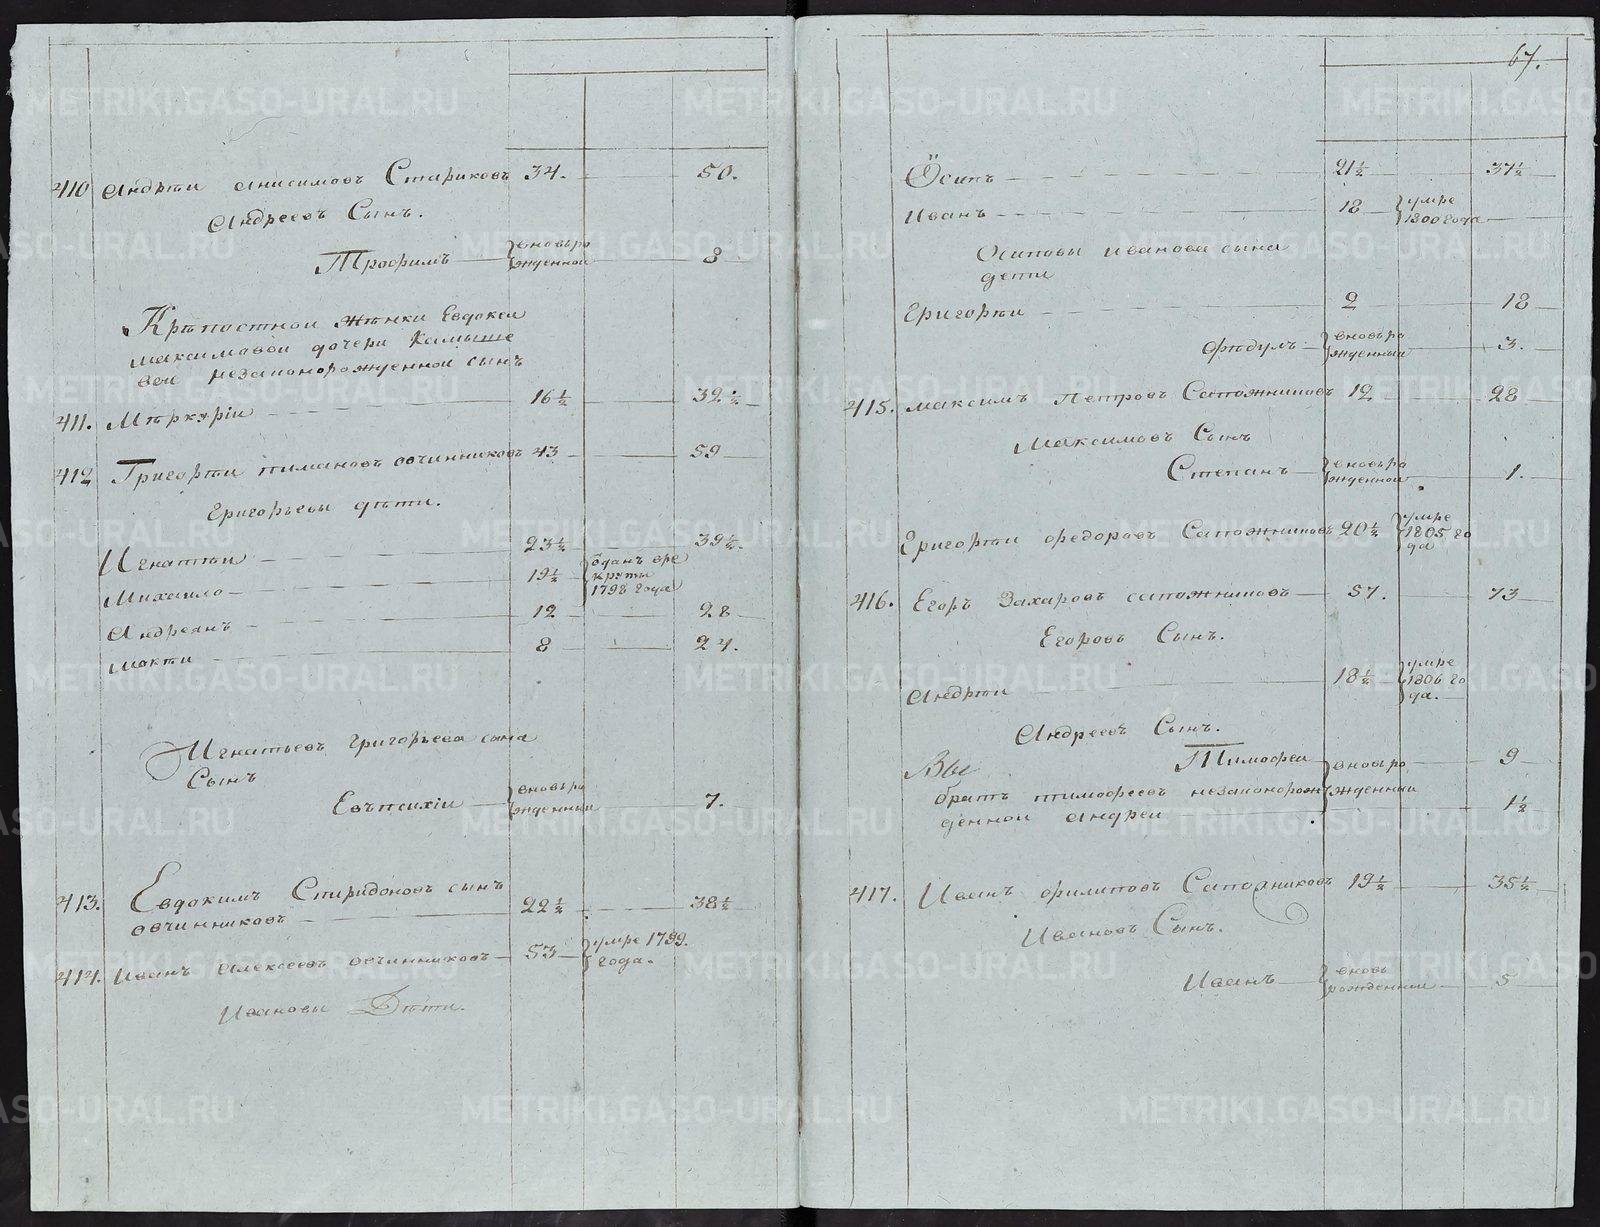 410 Андрѣи Анисимовъ Стариковъ 34. 50.
Андреевъ Сынъ.
Трофимъ вновьро
жденнои 8
Крѣпостнои жѣнки Евдокеи
максимовои дочери Камыше
вои незаконорожденнои сынъ
411. Мѣркуріи 16½ 32½
412 Григорѣи пимановъ овчинниковъ 43 59
Григорьевы дѣти.
Игнатѣи 23½ 39½.
Михаило 19½ ѿданъ вре
круты
1798 года
Андреянъ 12 28
мокѣи 8 24.
Игнатьевъ григорьева сына
Сынъ
Евъпсихіи вновьро
жденныи 7.
413. Евдокимъ Спиридоновъ сынъ
овчинниковъ 22½ 38½
414. Иванъ Алексеевъ овчинниковъ 53 умре 1799.
года.
Ивановы Дѣти.
67.
Ѡсипъ 21½ 37½
иванъ 18 умре
1800 года
Осиповы иванова сына
дети
Григорѣи 2 18
Фѣдулъ вновьро
жденныи 3.
415. максимъ Петровъ Сапожниковъ 12 28
Максимовъ Сынъ
Степанъ вновьро
жденнои 1.
Григорѣи Федоровъ Сапожниковъ 20½ умре
1805 го
да
416. Егоръ Захаровъ сапожниковъ 57. 73
Егоровъ Сынъ.
Андрѣи 18½ умре
1806 го
да.
Андреевъ Сынъ.
Тимофеи вновьро
жденныи 9
братъ тимофеевъ незаконорож
денной Андреи 1½
417. Иванъ филиповъ Сапожниковъ 19½ 35½
Ивановъ Сынъ.
Иванъ вновь
рожденныи 5
METRIKI.GASO-URAL.RU